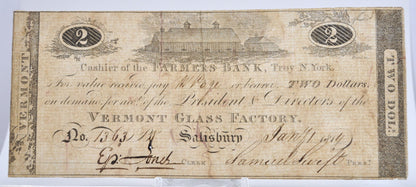 2 2
Cashier of the FARMERS BANK, Troy N. York.
For value received pay to or bearer TWO Dollars
on demand for acct. of the President & Directors of the
VERMONT GLASS FACTORY.
No. 14 Salisbury Jany
CLERK Samuel Swift PRES.
VERMONT
TWO DOL.